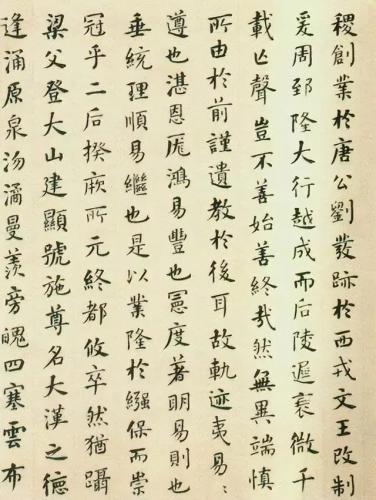 稷創業於唐公劉發跡於西戎文王改制
爰周郅隆大行越成而后陵遲衰微千
載亡聲豈不善始善終哉然無異端慎
所由於前謹遺教於後耳故軌迹夷易ミ
遵也湛恩厖鴻易豐也憲度著明易則也
垂統理順易繼也是以業隆於繈保而崇
冠乎二后揆厥所元終都攸卒然猶躡
梁父登大山建顯號施尊名大漢之德
逢涌原泉沕潏曼羨旁魄四塞雲布